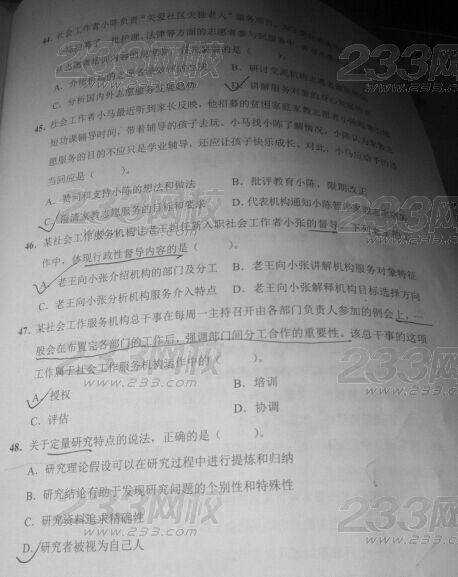 44. 社会工作者小陈负责“关爱社区失独老人”服务项目，为了
护理、法律等方面的志愿者参与到服务中
A. 介绍机构的志愿者
B. 研讨交流机构志愿者
C. 分析国内外志愿服务发展趋势
D. 讲解服务对象的身心发展特点
45. 社会工作者小马最近听到家长反映，他招募的贫困家庭家教志愿者小陈经常缩
短功课辅导时间，带着辅导的孩子去玩。小马找小陈了解情况，小陈认为家教志
愿服务的目的不应只是学业辅导，还应让孩子快乐成长。对此，小马应给予的适
当回应是（ ）。
A. 赞同和支持小陈的想法和做法
B. 批评教育小陈，限期改正
C. 澄清家教志愿服务的目标和要求
D. 代表机构通知小陈
46. 某社会工作服务机构让老王担任新入职社会工作者小张的督导，下列老王的工
作中，体现行政性督导内容的是（ ）。
A. 老王向小张介绍机构的部门及分工
B. 老王向小张讲解机构服务对象特征
C. 老王向小张分析机构服务介入特点
D. 老王向小张解释机构目标选择方向
47. 某社会工作服务机构总干事在每周一主持召开由各部门负责人参加的例会上，一
般会在布置完各部门的工作后，强调部门间分工合作的重要性。该总干事的这项
工作属于社会工作服务机构运作中的（ ）。
A. 授权
B. 培训
C. 评估
D. 协调
48. 关于定量研究特点的说法，正确的是（ ）。
A. 研究理论假设可以在研究过程中进行提炼和归纳
B. 研究结论有助于发现研究问题的个别性和特殊性
C. 研究资料追求精确性
D. 研究者被视为自己人
233网校
www.233.com
233网校
www.233.com
233网校
www.233.com
233网校
www.233.com